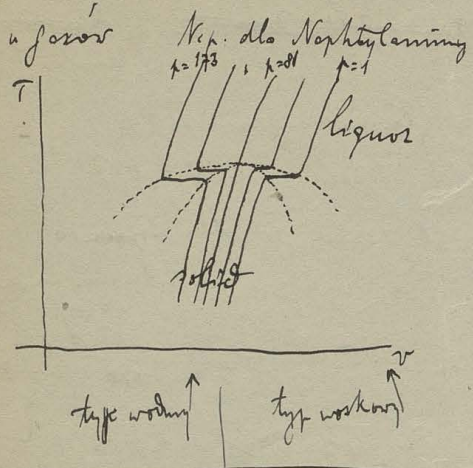 u gazów
Np. dla Naphtylaminy
p=173 p=81 p=1
T
liquor
solid
v
typ wodny
typ woskowy